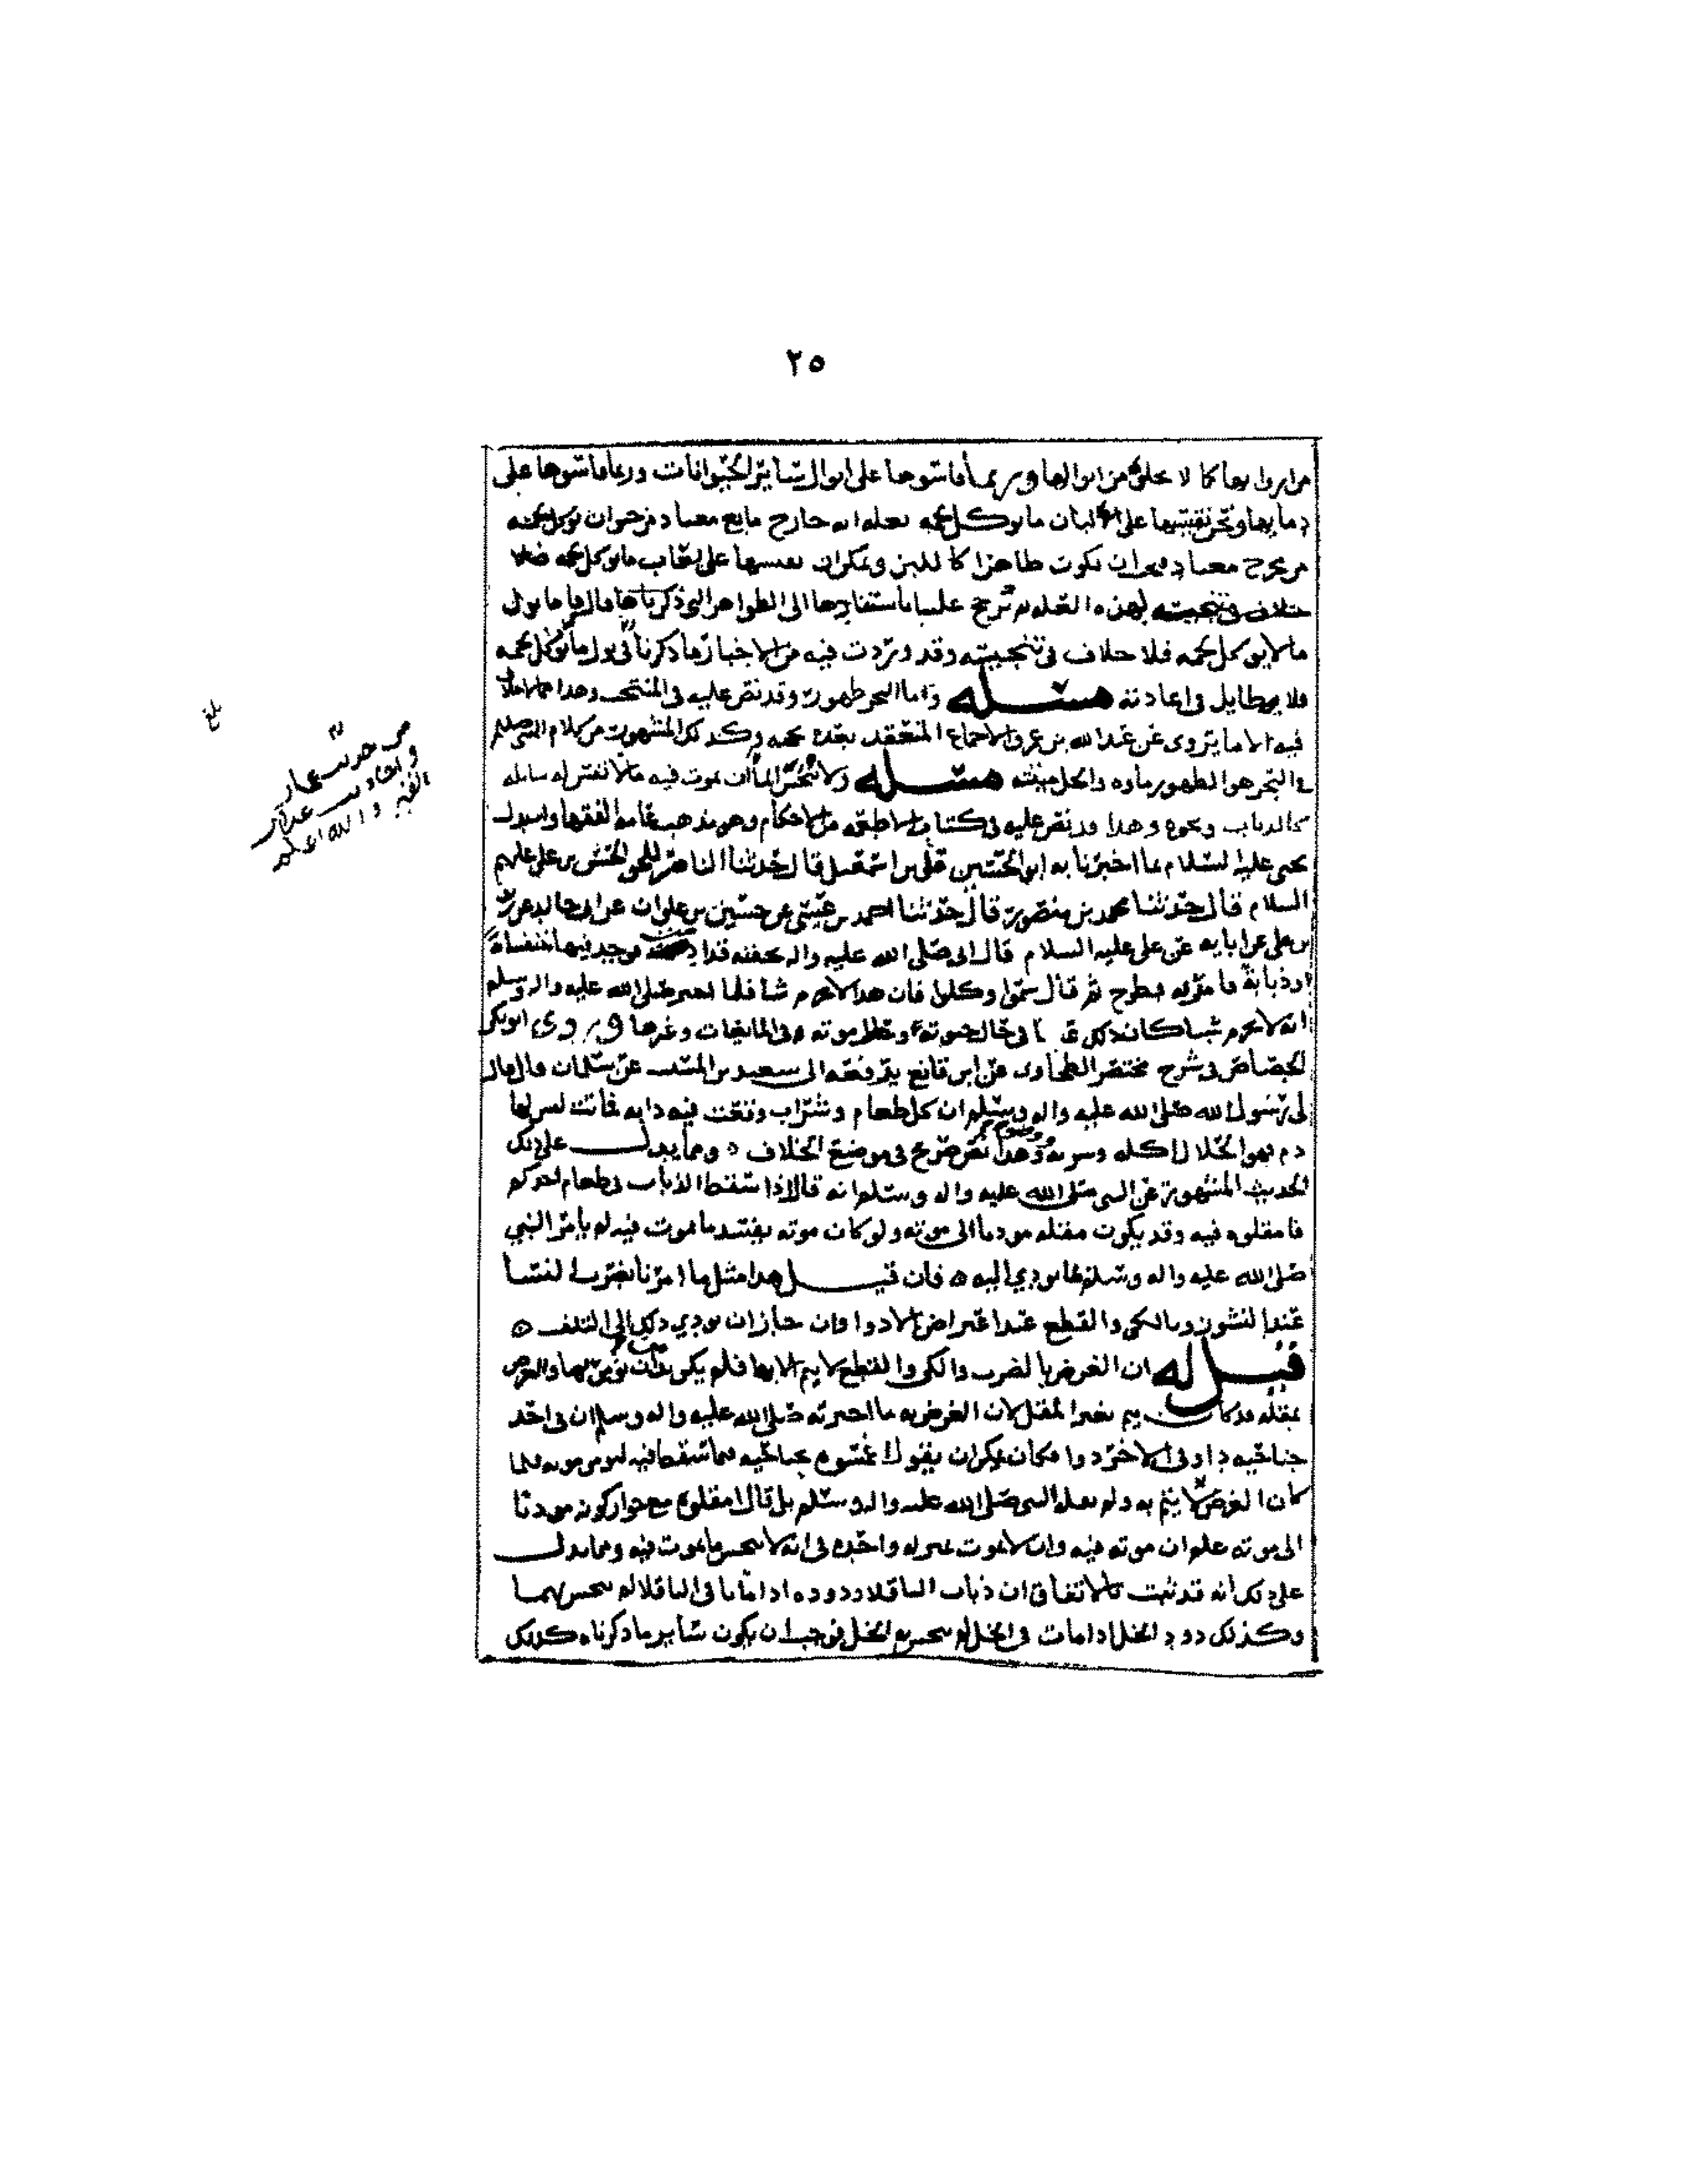 ٢٥
من ابوالها كما لا يخلو من ابوالها وربما قاسوها على ابوال سائر الحيوانات وربما قاسوها على
دمايها ونحن نقيسها على البان ما يوكل لحمه بعله انه خارج مايع معتاد من حيوان يوكل لحمه
من مخرج معتاد فيجب ان يكون طاهرا كاللبن ويمكن ان نقيسها على لعاب ما يوكل لحمه فلا
خلاف في تنجيسه لهذه العله ثم ترجح علينا باستنادها الى الظواهر التي ذكرناها فاما بول
ما لا يوكل لحمه فلا خلاف في تنجيسه وقد وردت فيه من الاخبار ما ذكرنا في بول ما يوكل لحمه
فلا طايل في اعادته مسئله واما البحر طهور وقد نص عليه في المنتخب وهذا مما لا خلاف
فيه الا ما يروى عن عبدالله بن عمر والاجماع المنعقد بعده يحجه وكذلك المشهور من كلام النبي صلعم
في البحر هو الطهور ماؤه والحل ميتته مسئله ولا ينجس الماء ان يموت فيه ما لا نفس له سايله
كالذباب ونحوه وهذا قد نص عليه في كتاب الاطعمه من الاحكام وهو مذهب عامه الفقها واستدل
يحيى عليه السلام بما اخبرنا به ابو الحسين علي بن اسمعيل قال حدثنا الناصر للحق الحسن بن علي عليهم
السلام قال حدثنا محمد بن منصور قال حدثنا احمد بن عيسى عن حسين بن علوان عن ابي خالد عن زيد
بن علي عن ابايه عن علي عليه السلام قال اتي صلى الله عليه واله بجفنه قد ادمت فوجد فيها خنفساة
او ذبابة فامر به فطرح ثم قال سموا وكلوا فان هذا لا يحرم شيا فلما اخبر صلى الله عليه واله وسلم
انه لا يحرم شيا كان ذلك عاما في حال حيوته وحال موته وفي المايعات وغيرها وروى ابو بكر
الجصاص في شرح مختصر الطحاوي عن ابن قانع يرفعه الى سعيد بن المسيب عن سلمان قال قال
لي رسول الله صلى الله عليه واله وسلم ان كل طعام وشراب وقعت فيه دابه فماتت ليس لها
دم فهو الحلال اكله وشربه ووضوءه وهذا نص صريح في موضع الخلاف ٥ ومما يدل على ذلك
الحديث المشهور عن النبي صلى الله عليه واله وسلم انه قال اذا سقط الذباب في طعام احدكم
فامقلوه فيه وقد يكون مقله موديا الى موته ولو كان موته يفسد ما يموت فيه لم يامر النبي
صلى الله عليه واله وسلم بما يودي اليه ٥ فان قيل هذا مثل ما امرنا بضرب النسا
عند النشوز وبالكي والقطع عند اعتراض الادوا وان جاز ان يودي ذلك الى التلف ٥
قيل له ان الغرض بالضرب والكي والقطع لا يتم الا بها فلم يكن بد من ان يومر بها والغرض
بمقله قد كان يتم بغير المقل لان الغرض به ما اخبر به صلى الله عليه واله وسلم ان في احد
جناحيه دا وفي الاخر دوا فكان يمكن ان يقول غمسوه بجناحيه فيما سقط فيه ليومن موته فلما
كان الغرض لا يتم به ولم يقله النبي صلى الله عليه واله وسلم بل قال امقلوه مع جواز كونه موديا
الى موته علم ان موته فيه وان لا يموت بمنزله واحده في انه لا ينجس ما يموت فيه ومما يدل
على ذلك انه قد ثبت بالاتفاق ان ذباب الباقلا ودوده اذا ماتا في الباقلا لم ينجس بهما
وكذلك دود الخل اذا مات في الخل لم ينجس به الخل فوجب ان يكون سائر ما ذكرناه كذلك
بلغ
من حديث عمار
واحاديث عذاب
القبر والله اعلم